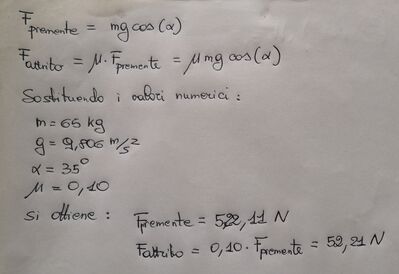 Fpremente = mg cos(α)
Fattrito = μ · Fpremente = μ mg cos(α)
Sostituendo i valori numerici :
m = 65 kg
g = 9,806 m/s²
α = 35°
μ = 0,10
si ottiene : Fpremente = 522,11 N
Fattrito = 0,10 · Fpremente = 52,21 N